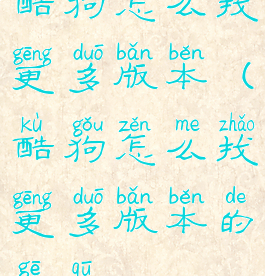 酷狗怎么找
gēng duō bǎn běn
更多版本（
kù gǒu zěn me zhǎo
酷狗怎么找
gēng duō bǎn běn de
更多版本的
gē qū